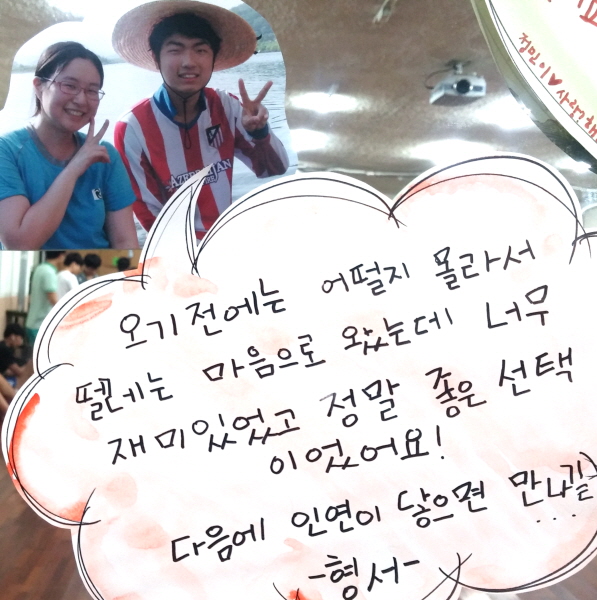 정민이♥사랑해
AZERBAIJAN
오기전에는 어떨지 몰라서
떨리는 마음으로 왔는데 너무
재미있었고 정말 좋은 선택
이었어요!
다음에 인연이 닿으면 만나길
...
-형서-